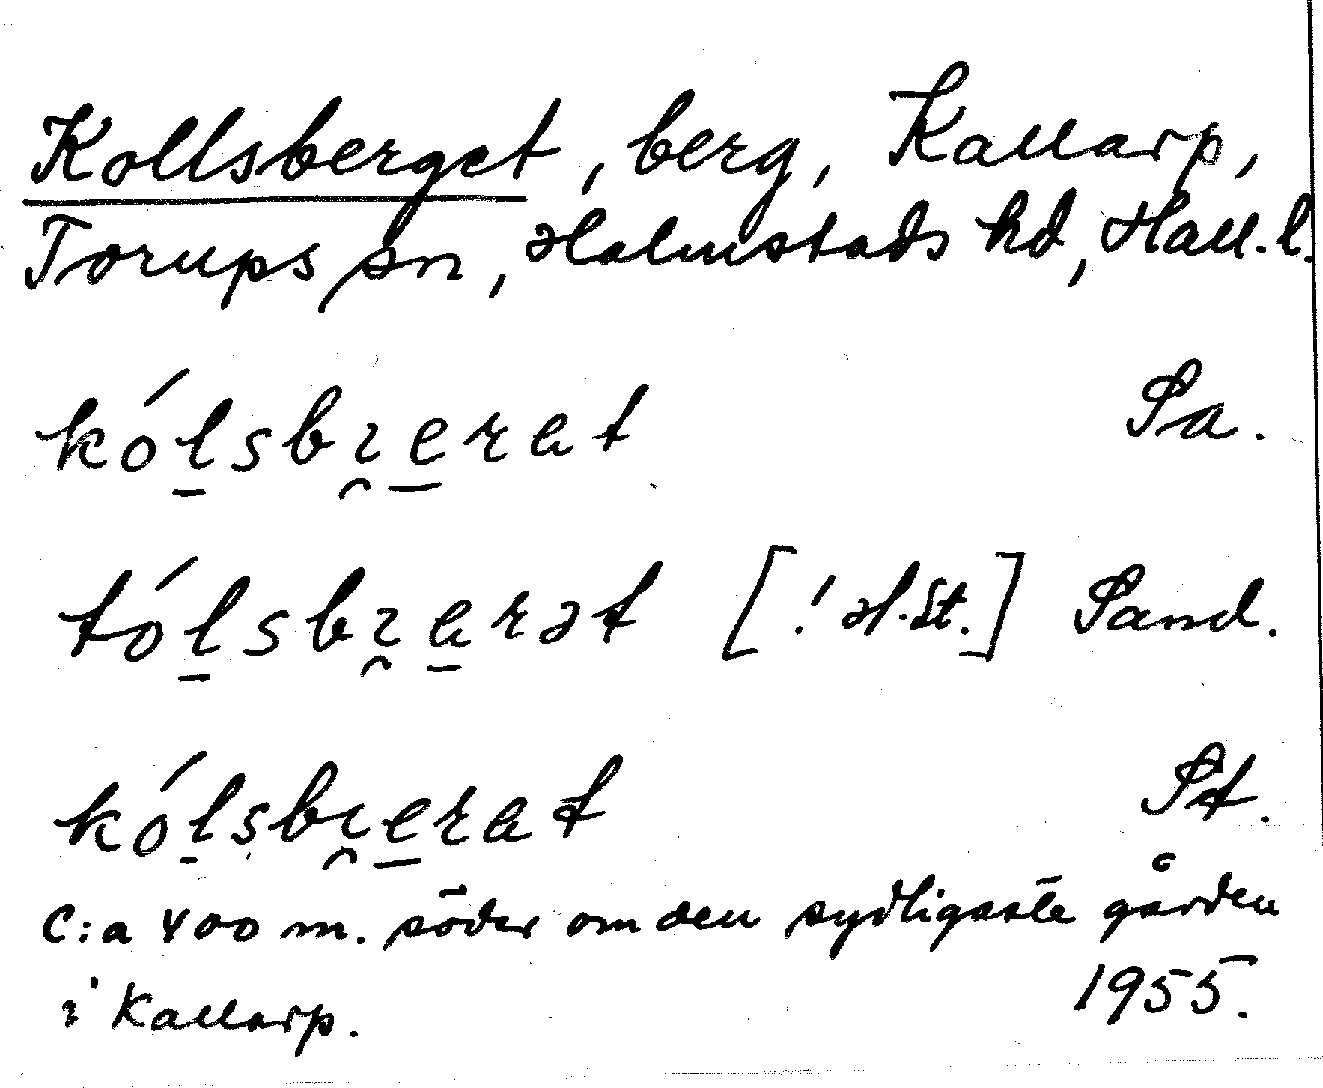 Kollsberget, berg, Kallarp,
Torups sn, Halmstads hd, Hall. l.
kól̲sbɪ̯e̲rat Sa.
tól̲sbɪ̯a̲rət [! H.St.] Sand.
kól̲sbɪ̯e̲rat St.
C:a 400 m. söder om den sydligaste gården
i Kallarp. 1955.